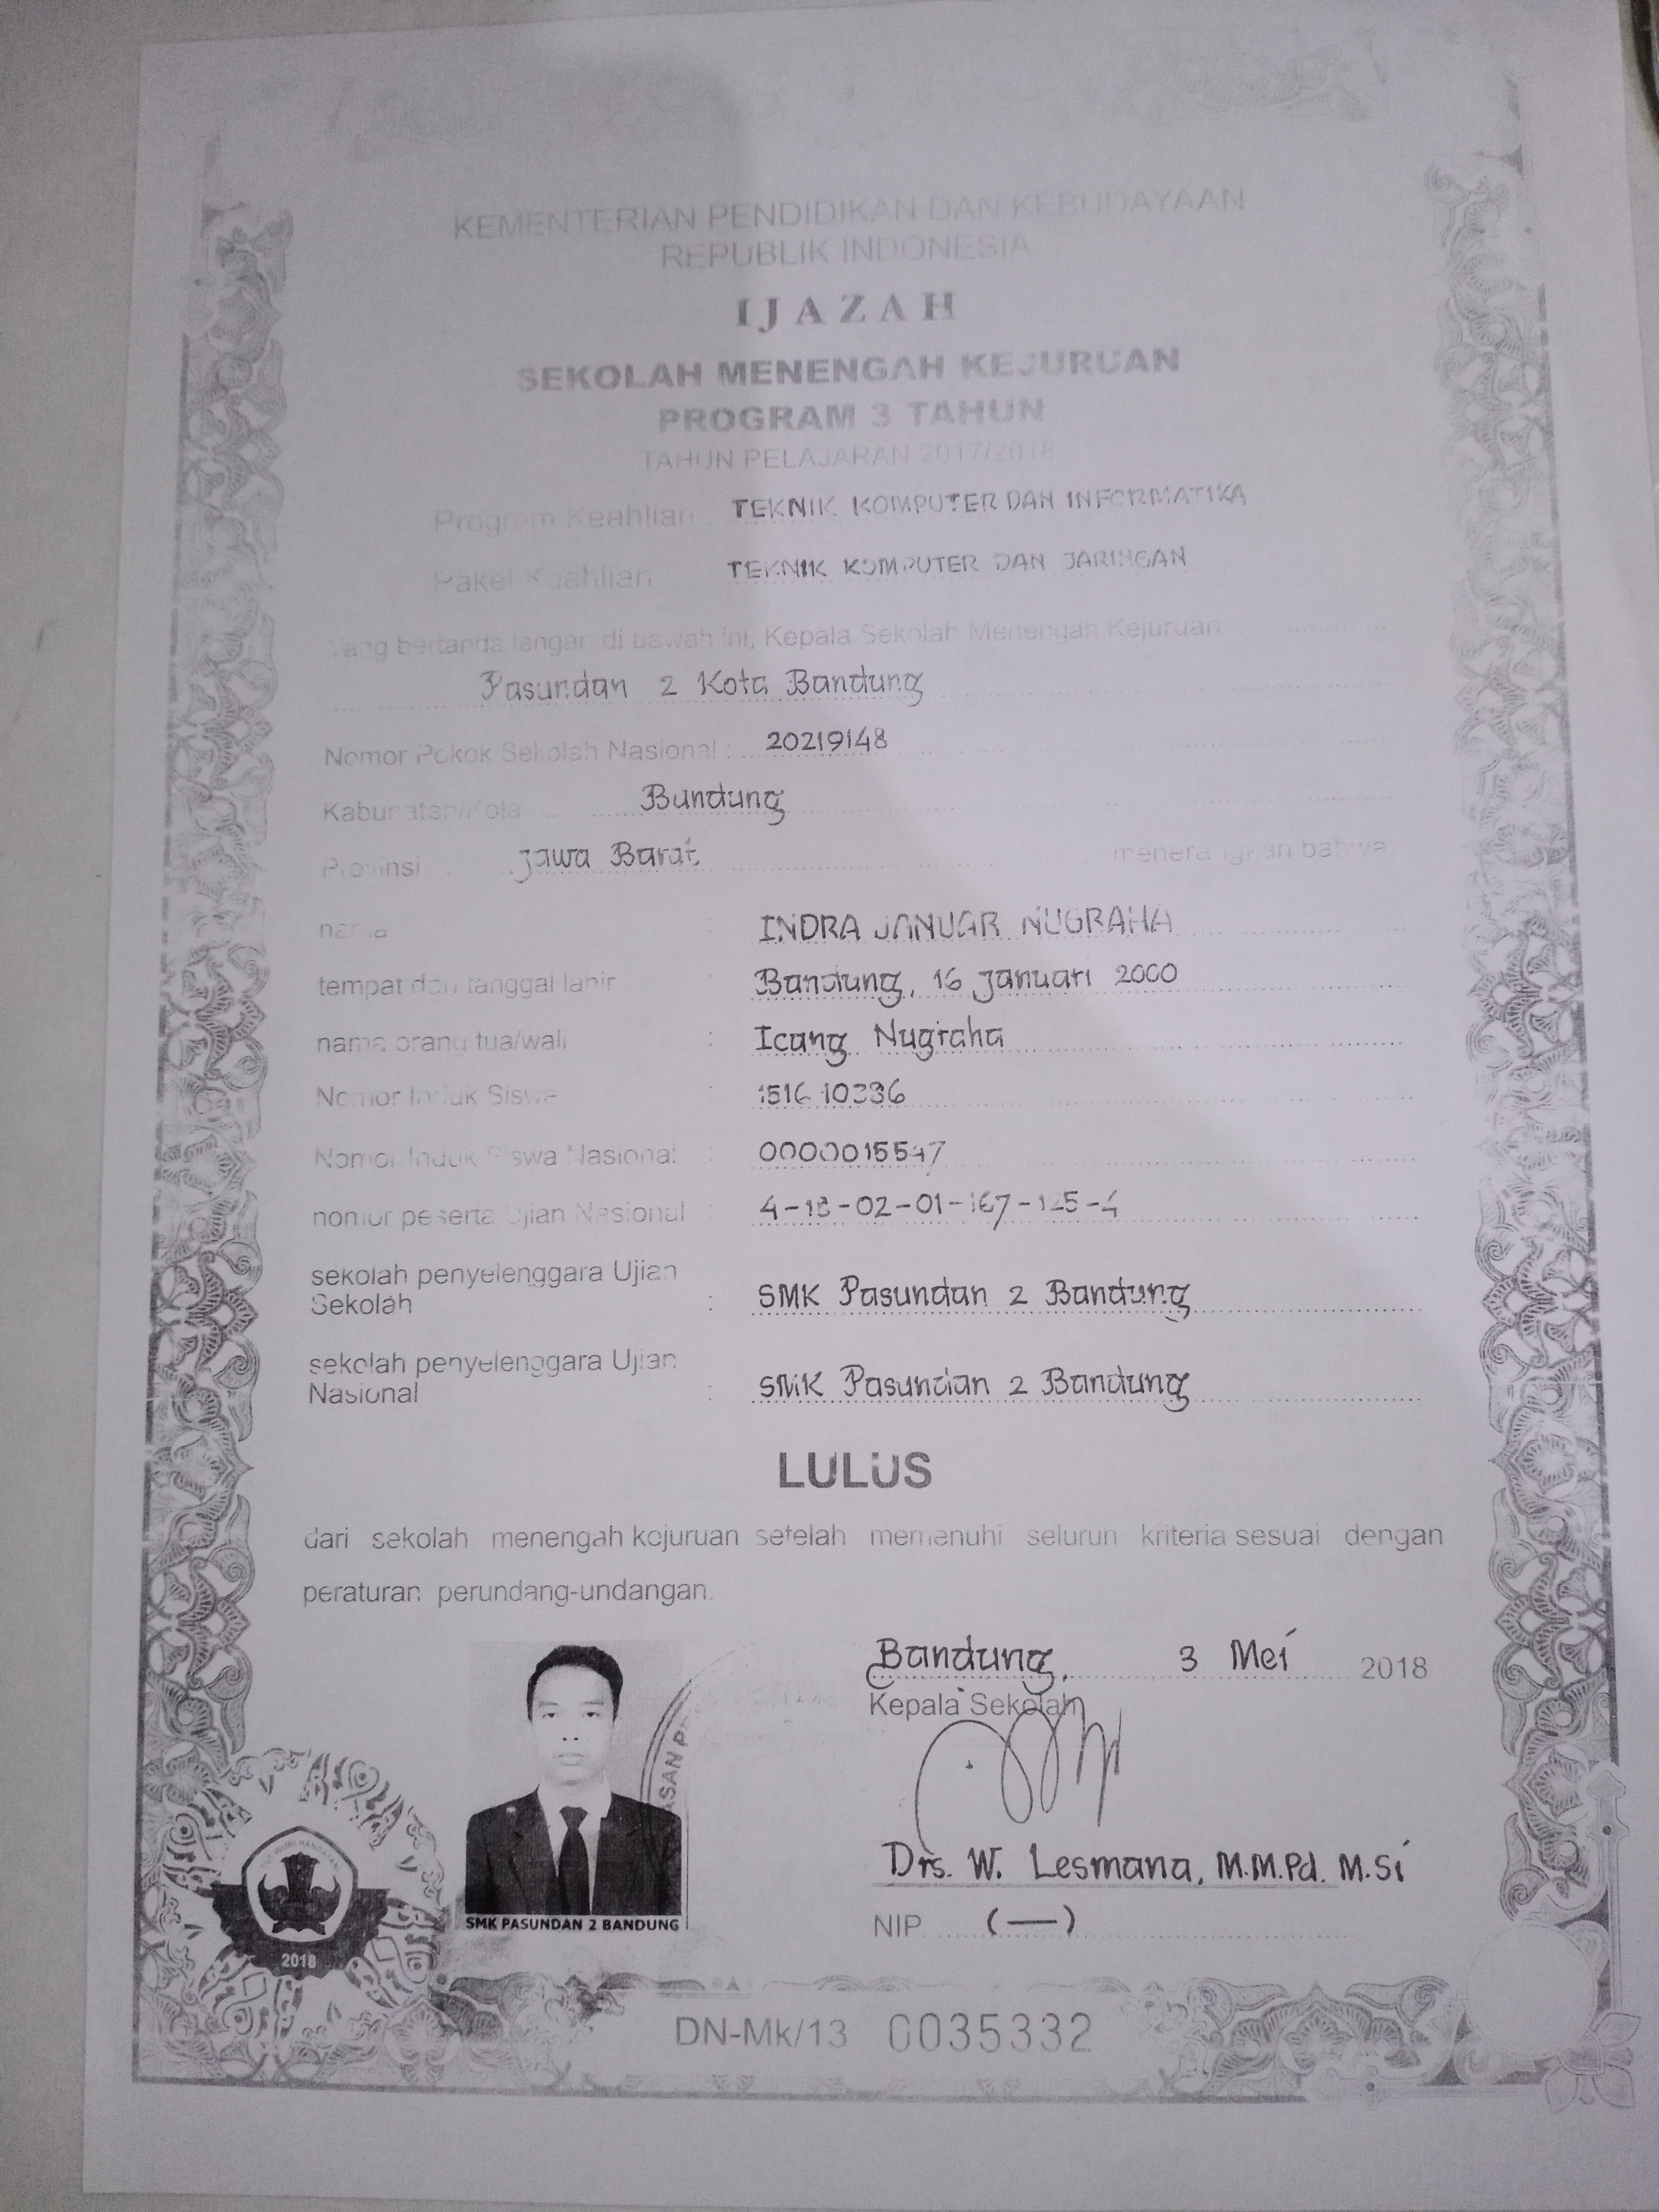 KEMENTERIAN PENDIDIKAN DAN KEBUDAYAAN
REPUBLIK INDONESIA
IJAZAH
SEKOLAH MENENGAH KEJURUAN
PROGRAM 3 TAHUN
TAHUN PELAJARAN 2017/2018
Program Keahlian : TEKNIK KOMPUTER DAN INFORMATIKA
Paket Keahlian TEKNIK KOMPUTER DAN JARINGAN
Yang bertanda tangan di bawah ini, Kepala Sekolah Menengah Kejuruan
Pasundan 2 Kota Bandung
Nomor Pokok Sekolah Nasional : 20219148
Kabupaten/Kota Bandung
Provinsi Jawa Barat menerangkan bahwa
nama : INDRA JANUAR NUGRAHA
tempat dan tanggal lahir : Bandung, 16 Januari 2000
nama orang tua/wali : Icang Nugraha
Nomor Induk Siswa : 151610336
Nomor Induk Siswa Nasional : 0000015547
nomor peserta Ujian Nasional : 4-18-02-01-167-125-4
sekolah penyelenggara Ujian
Sekolah : SMK Pasundan 2 Bandung
sekolah penyelenggara Ujian
Nasional : SMK Pasundan 2 Bandung
LULUS
dari sekolah menengah kejuruan setelah memenuhi seluruh kriteria sesuai dengan
peraturan perundang-undangan.
Bandung, 3 Mei 2018
Kepala Sekolah
SAN P
Drs. W. Lesmana, M.M.Pd. M.Si
SMK PASUNDAN 2 BANDUNG
NIP (—)
TUT WURI HANDAYANI
2018
DN-Mk/13 0035332